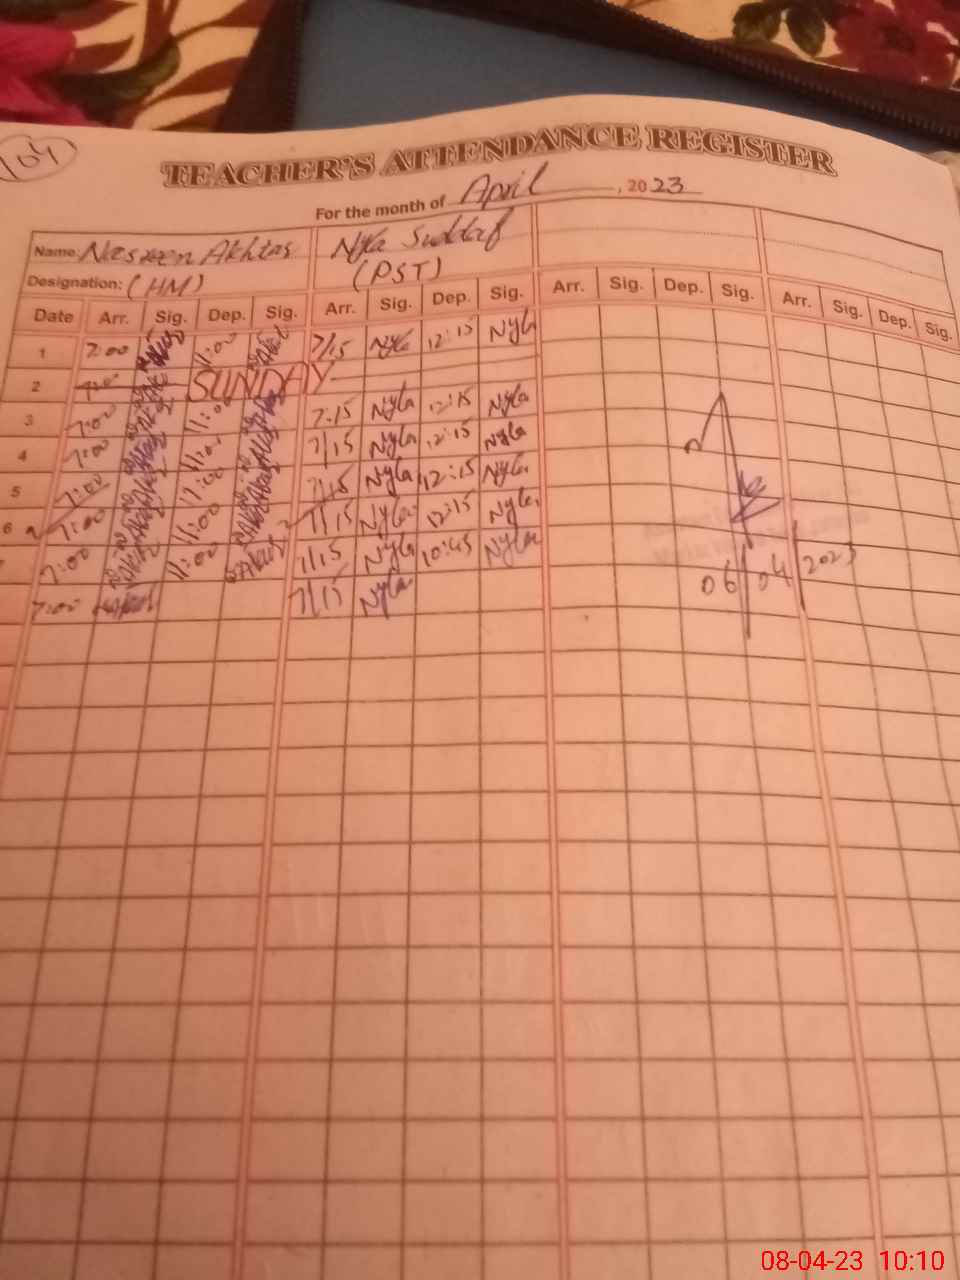 104
TEACHER'S ATTENDANCE REGISTER
For the month of April, 2023
Name: Nasreen Akhtar Nyla Suddaf
Designation: (HM) (PST)
Date Arr. Sig. Dep. Sig. Arr. Sig. Dep. Sig. Arr. Sig. Dep. Sig. Arr. Sig. Dep. Sig.
1 7:00 11:00 7/15 Nyla 12:15 Nyla
2 7:00 SUNDAY
3 7:00 11:00 7:15 Nyla 12:15 Nyla
4 7:00 11:00 7/15 Nyla 12:15 Nyla
5 7:00 11:00 7/15 Nyla 12:15 Nyla
6 7:00 11:00 7/15 Nyla 12:15 Nyla
7:00 11:00 7/15 Nyla 10:45 Nyla
7:00 7/15 Nyla
06/04/2023
08-04-23 10:10